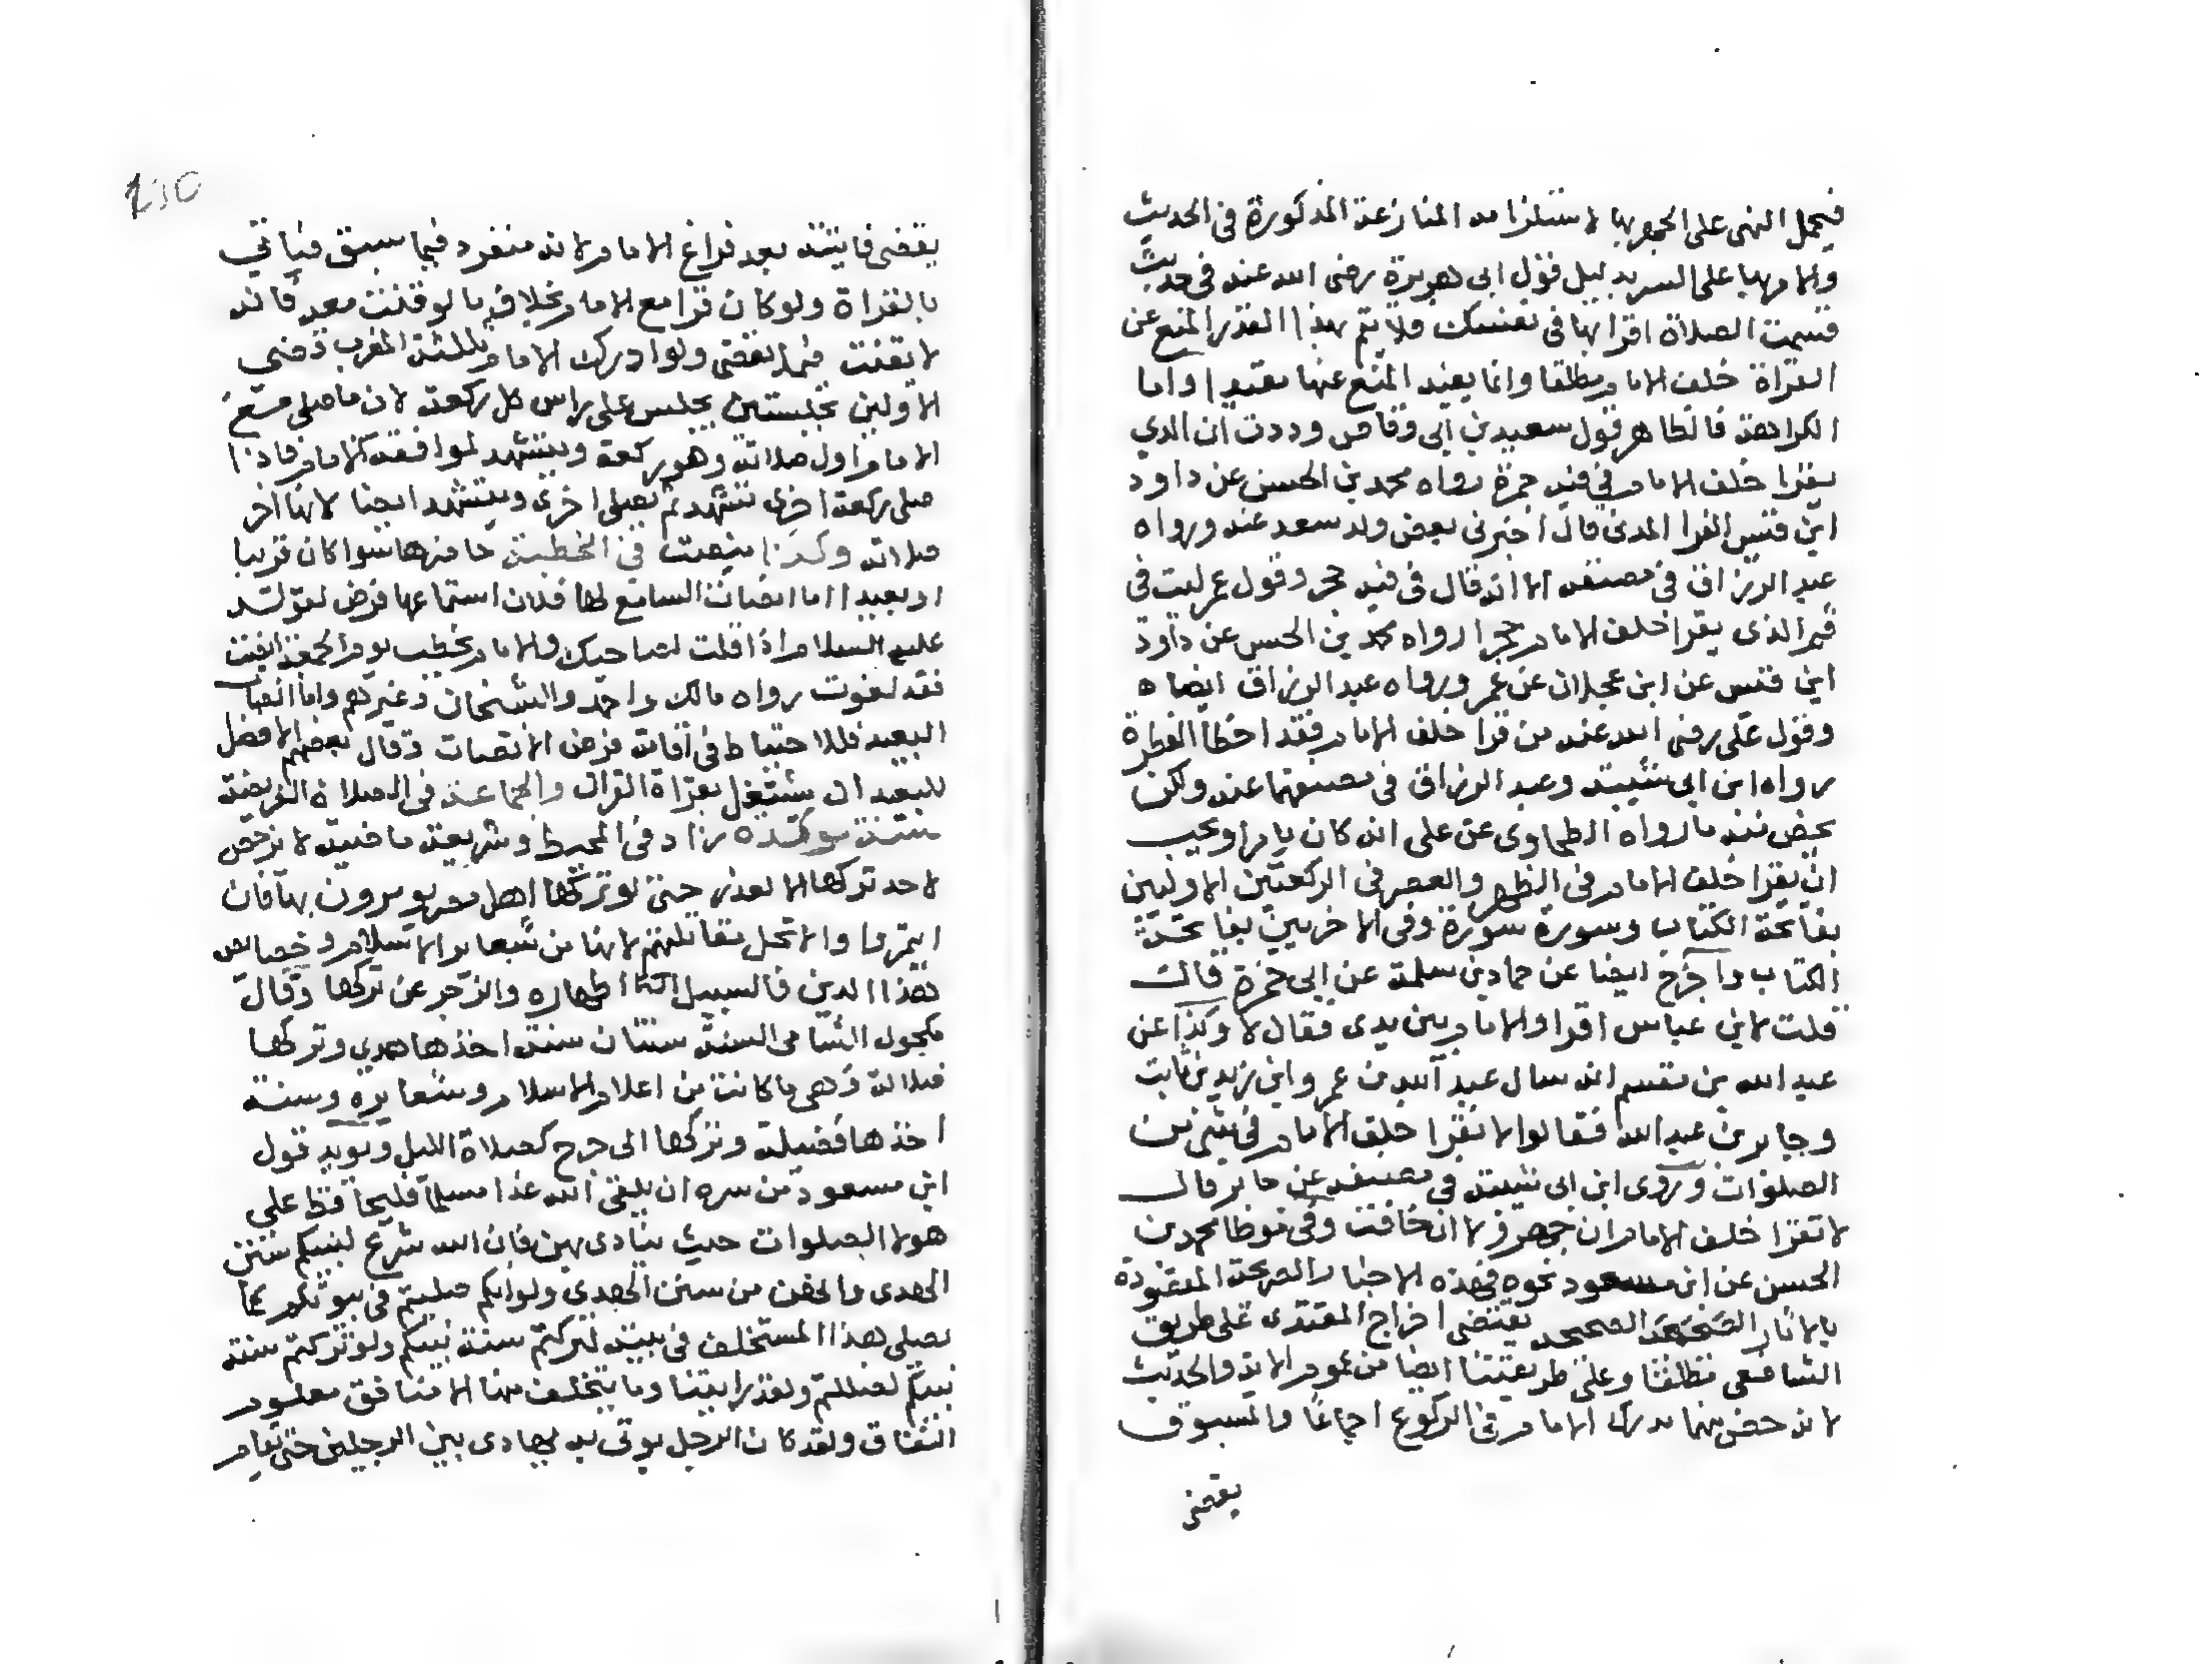 فيحمل النهى على الجهر بها لاستلزامه المنازعة المذكورة فى الحديث
والامر بها على السر بدليل قول ابى هريرة رضى الله عنه فى حديث
قسمت الصلاة اقرا بها فى نفسك فلا يتم بهذا القدر المنع عن
القراة خلف الامام مطلقا وانما يفيد المنع عنها مقيدا واما
الكراهة فالظاهر قول سعيد بن ابى وقاص وددت ان الذي
يقرا خلف الامام في فيه جمرة رواه محمد بن الحسن عن داود
ابن قيس الفرا المدنى قال اخبرنى بعض ولد سعد عنه ورواه
عبد الرزاق فى مصنفه الا انه قال فى فيه حجر وقول عمر ليت فى
فم الذى يقرا خلف الامام حجرا رواه محمد بن الحسن عن داود
ابن قيس عن ابن عجلان عن عمر ورواه عبد الرزاق ايضا ه
وقول على رضى الله عنه من قرا خلف الامام فقد اخطا الفطرة
رواه ابن ابى شيبة وعبد الرزاق فى مصنفهما عنه ولكن
يخص منه ما رواه الطحاوى عن على انه كان يامر او يحب
ان يقرا خلف الامام فى الظهر والعصر فى الركعتين الاوليين
بفاتحة الكتاب وسورة سورة وفى الاخريين بفاتحة
الكتاب واخرج ايضا عن حماد بن سلمة عن ابى حمزة قال
قلت لابن عباس اقرا والامام بين يدى فقال لا وكذا عن
عبد الله بن مقسم انه سال عبد الله بن عمر وابن زيد بن ثابت
وجابر بن عبد الله فقالوا لا تقرا خلف الامام فى شى من
الصلوات وروى ابن ابى شيبة فى مصنفه عن جابر قال
لا تقرا خلف الامام ان جهر ولا ان خافت وفى موطا محمد بن
الحسن عن ابن مسعود نحوه فهذه الاخبار الصريحة المعضودة
بالاثار الصحيحة يقتضى اخراج المقتدى على طريق
الشافعى مطلقا وعلى طريقتنا ايضا من عموم الاية والحديث
لانه خص منهما مدرك الامام فى الركوع اجماعا والمسبوق
يقضى
يقضى فايتته بعد فراغ الامام لانه منفرد فيما سبق فياتي
بالقراة ولو كان قرا مع الامام بخلاف ما لو قنت معه فانه
لا يقنت فيما يقضى ولو ادرك الامام بثالثة المغرب قضى
الاولين بجلستين يجلس على راس كل ركعة لان ما صلى مع
الامام اول صلاته وهو ركعة ويتشهد لموافقة الامام فاذا
صلى ركعة اخرى تشهد ثم يصلى اخرى ويتشهد ايضا لانها اخر
صلاته وكذا ينصت فى الخطبة حاضرها سوا كان قريبا
او بعيدا اما انصات السامع لها فلان استماعها فرض لقوله
عليه السلام اذا قلت لصاحبك والامام يخطب يوم الجمعة انصت
فقد لغوت رواه مالك واحمد والشيخان وغيرهم واما انصات
البعيد فللاحتياط فى اقامة فرض الانصات وقال بعضهم الافضل
للبعيد ان يشتغل بقراة القران والجماعة فى الصلاة الفريضة
سنة موكدة زاد فى المحيط وشريعة ماضية لا يرخص
لاحد تركها الا لعذر حتى لو تركها اهل مصر يومرون بها فان
ايتمروا والا تحل مقاتلتهم لانها من شعاير الاسلام وخصايص
هذا الدين فالسبيل اظهاره والزجر عن تركها وقال
مكحول الشامى السنة سنتان سنة اخذها هدي وتركها
ضلالة وهى ما كانت من اعلام الاسلام وشعايره وسنة
اخذها فضيلة وتركها الى حرج كصلاة الليل ويويد قول
ابن مسعود من سره ان يلقى الله غدا مسلما فليحافظ على
هولا الصلوات حيث ينادى بهن فان الله شرع لنبيكم سنن
الهدى والهن من سنن الهدى ولو انكم صليتم فى بيوتكم كما
يصلى هذا المتخلف فى بيته لتركتم سنة نبيكم ولو تركتم سنة
نبيكم لضللتم ولقد رايتنا وما يتخلف عنها الا منافق معلوم
النفاق ولقد كان الرجل يوتى به يهادى بين الرجلين حتى يقام